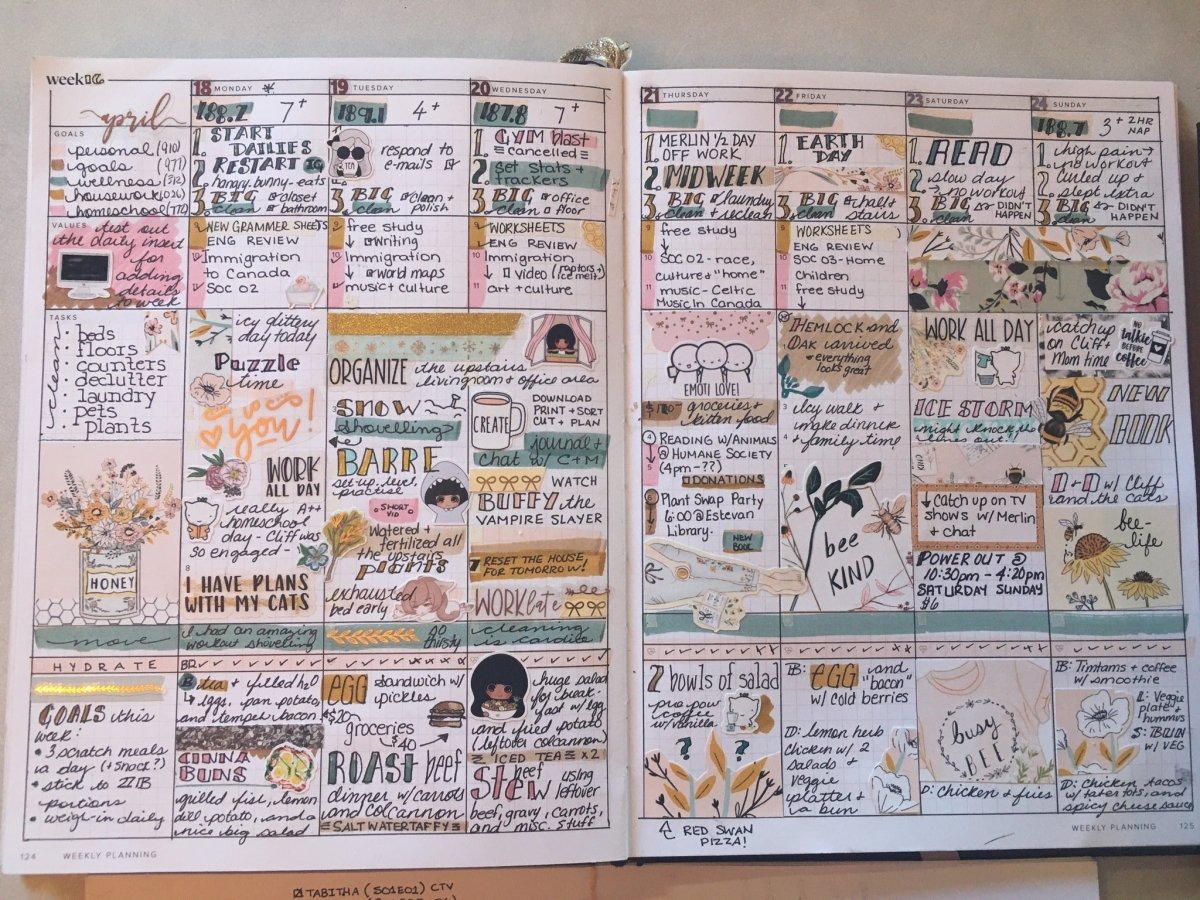 week 16
april
GOALS
personal (910)
goals (971)
wellness (512)
housework (026)
homeschool (772)
VALUES
test out
the daily insert
for
adding
details
to week
TASKS
clean!
beds
floors
counters
declutter
laundry
pets
plants
HONEY
move
HYDRATE
GOALS this
week:
• 3 scratch meals
a day (+ snack?)
• stick to
portions
• weigh-in daily
124 WEEKLY PLANNING
18 MONDAY
188.2 7+
1. START
DAILIES
RESTART IG
2. hangry bunny-eats
3. BIG closet
clean bathroom
9 NEW GRAMMER SHEETS
ENG REVIEW
10 Immigration
to Canada
11 SOC 02
icy glittery
day today
Puzzle
time
yes
you!
WORK
ALL DAY
really A++
homeschool
day - Cliff was
so engaged -
8
I HAVE PLANS
WITH MY CATS
I had an amazing
workout shovelling
B: tea + filled h2o
↳ eggs, pan potato,
and tempeh bacon
CINNA
BUNS
grilled fish, lemon
dill potato, and a
nice big salad
19 TUESDAY
189.1 4+
1.
TEA
respond to
e-mails
2.
3. BIG clean +
clean polish
9 free study
↓ writing
10 Immigration
↓ world maps
11 music + culture
ORGANIZE the upstairs
livingroom + office area
SNOW
shovelling
BARRE
set up, level,
practise
SHORT
VID
Watered +
fertilized all
the upstairs
plants
exhausted
bed early
SO
thirsty
EGG sandwich w/
pickles
$20
groceries
$40
ROAST beef
dinner w/ carrots
and colcannon
SALT WATER TAFFY
20 WEDNESDAY
187.8 7+
1. GYM blast
cancelled
2. set stats +
trackers
3. BIG office
clean floor
9 WORKSHEETS
ENG REVIEW
10 Immigration
↓ video (raptors + ice melt)
11 art + culture
CREATE
DOWNLOAD
PRINT + SORT
CUT + PLAN
journal +
chat w/ C+M
WATCH
BUFFY the
VAMPIRE SLAYER
RESET THE HOUSE,
FOR TOMORROW!
WORK late
cleaning
is cardio
huge salad
for break-
fast w/ egg
and fried potato
(leftover colcannon)
ICED TEA x 2
beef
Stew using
leftover
beef, gravy, carrots,
and misc. stuff
21 THURSDAY
1. MERLIN 1/2 DAY
OFF WORK
2. MIDWEEK
3. BIG laundry
clean + reclean
9 free study
↓
10 SOC 02 - race,
culture + "home"
11 music - Celtic
Music In Canada
EMOTI LOVE!
groceries +
kitten food
4 READING W/ANIMALS
@ HUMANE SOCIETY
5 (4pm -??)
DONATIONS
6 Plant Swap Party
6:00 @ Estevan
Library.
NEW
BOOK
2 bowls of salad
coffee
w/ vanilla
? ?
RED SWAN
PIZZA!
22 FRIDAY
1. EARTH
DAY
2.
3. BIG hall +
clean stairs
9 WORKSHEETS
ENG REVIEW
10 SOC 03-Home
Children
11 free study
↓
HEMLOCK and
OAK arrived
- everything
looks great
Icy walk +
make dinner
+ family time
bee
KIND
B: EGG and
"bacon"
w/ cold berries
D: lemon herb
chicken w/ 2
salads +
veggie
platter +
a bun
23 SATURDAY
1. READ
2. slow day
→ no workout
3. BIG DIDN'T
clean HAPPEN
WORK ALL DAY
ICE STORM
might knock the
↓ catch up on TV
shows w/ Merlin
+ chat
POWER OUT @
10:30pm - 4:20pm
SATURDAY SUNDAY
#6
busy
BEE
D: chicken + fries
24 SUNDAY
188.7 3+ 2HR
NAP
1. high pain →
no workout
2. curled up +
slept extra
3. BIG DIDN'T
clean HAPPEN
catch up
on Cliff +
Mom time
NO
talkie
BEFORE
coffee
NEW
BOOK
D+D w/ Cliff
and the cats
bee-
life
B: Timtams + coffee
w/ smoothie
L: Veggie
plate +
hummus
w/ VEG
D: chicken tacos
w/ tater tots, and
spicy cheese sauce
WEEKLY PLANNING 125
TABITHA (S01E01) CTV